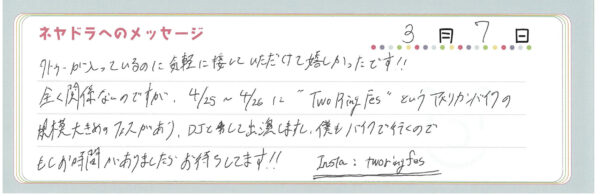 ネヤドラへのメッセージ
3月7日
タトゥーが入っているのに気軽に接していただけて嬉しかったです!!
全く関係ないのですが、4/25～4/26に"Two Ring Fes"というアメリカンバイクの
規模大きめのフェスがあり、DJとして出演します。僕もバイクで行くので
もしお時間がありましたらお待ちしてます!!
Insta : tworingfes